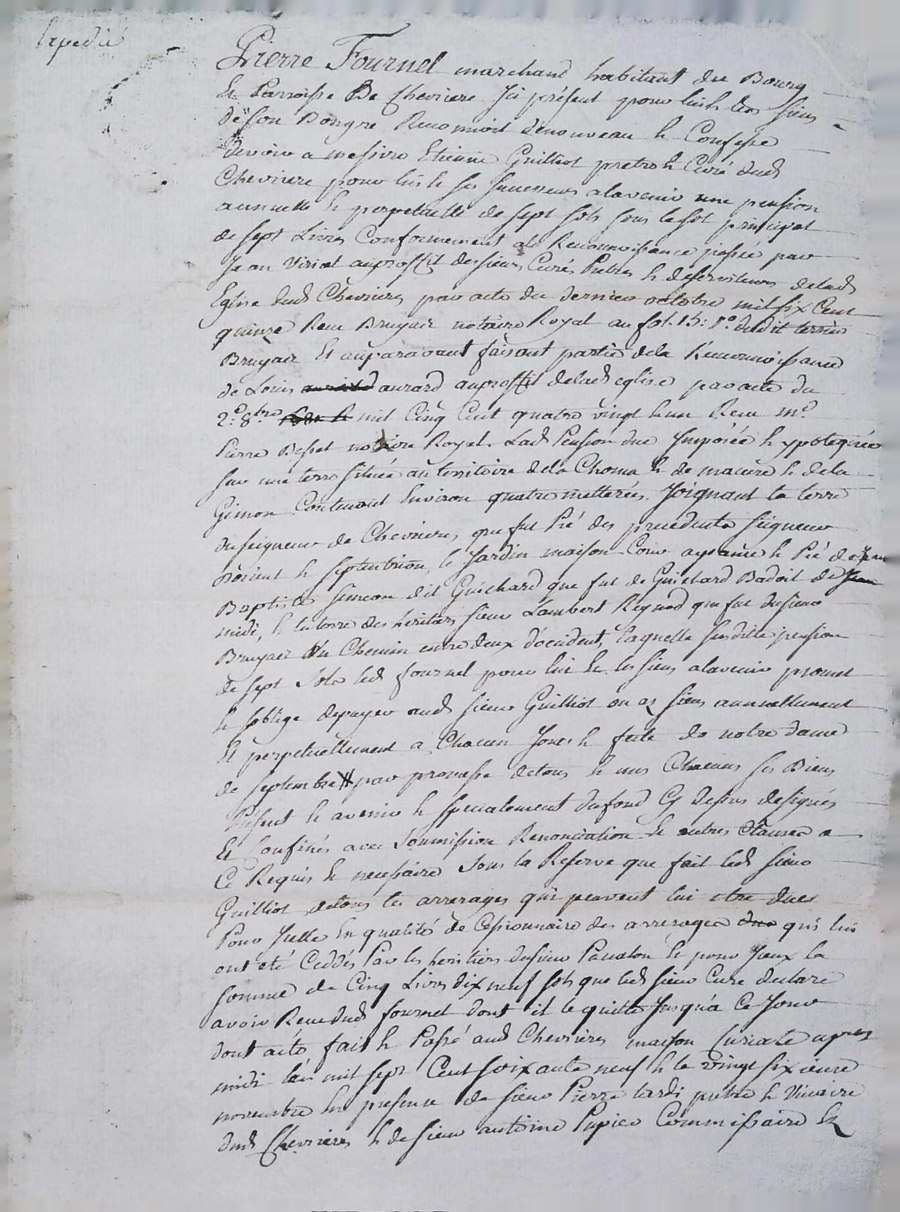 Expedié
Pierre Fournel marchand habitant du Bourg
et Parroisse De Chevriere Ici présent pour lui & les siens
de son Bongre Reconnoit denouveau & Confesse
devoir a messire Etienne Guilliot pretre & Curé dud
Chevriere pour lui & ses successeurs alavenir une pension
annuelle & perpetuelle de sept sols sous le sol principal
de sept Livres Conformement ala Reconnoissance passée par
Jean Virict auproffit desieurs Curé Pretres & desserviteurs delad
Eglise dud Chevrieres par acte du dernier octobre mil six Cent
quinze Reçu Bruyair notaire Royal au fol. 15: r.º dudit terrier
Bruyair Et auparavant faisant partie dela Reconnoissance
de Louis aurard auproffit delad eglise par acte du
2.e 8bre mil Cinq Cent quatre vingt & un Reçu m.e
Pierre Besset notaire Royal. Lad Pension due Imposée & ypotequée
sur une terre située au territoire dela Choma & de & dela
Gimon Contenant Environ quatre metterées Joignant la terre
du seigneur de Chevrieres qui fut Pré des precedents seigneurs
dorient & septentrion, le Jardin maison Cour & Pré de Jean
Baptiste Simeon dit Guichard que fut de Guichard Badoit de
midi, & la terre des heritiers sieur Lambert Regnod qui fut du sieur
Bruyair Un Chemin entre deux doccident, laquelle susdite pension
de sept sols led fournel pour lui & les siens alavenir promet
& soblige depayer aud sieur Guilliot ou as siens annuellement
Et perpetuellement a Chacun Jour & feste de notre dame
de septembre par promesse detous & uns Chacuns ses Biens
présent & avenir & specialement dufond Cy dessus designés
Et Confinés avec soummission Renonciation & autres Clauses a
Ce Requis & necessaire sous la Reserve que fait led sieur
Guilliot detous les arrerages qui peuvent lui etre dues
Pour Icelle En qualité de Cessionnaire des arrerages qui lui
ont été Ceddés Par les heritiers dusieur & pour Iceux la
somme de Cinq Livres dix neuf sols que led sieur Curé declare
avoir Reçu dud fournel dont il le quitte Jusqu'a Ce Jour
dont acte fait & Passé aud Chevrieres maison Curiale apres
midi lan mil sept Cent soixante neuf & le vingt sixieme
novembre En presence de sieur Pierre tardi pretre & Vicaire
dud Chevrieres & de sieur antoine Pupier Commissaire &